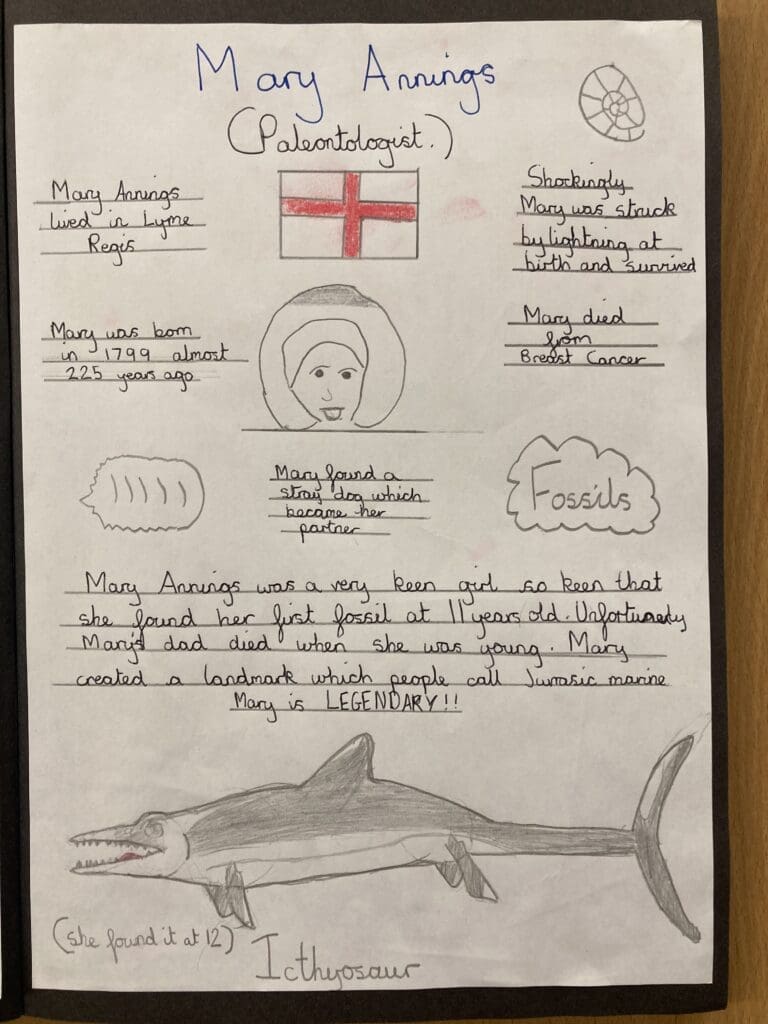 Mary Annings
(Paleontologist.)
Mary Annings
lived in Lyme
Regis
Shockingly
Mary was struck
by lightning at
birth and survived
Mary was born
in 1799 almost
225 years ago
Mary died
from
Breast Cancer
Mary found a
stray dog which
became her
partner
Fossils
Mary Annings was a very keen girl so keen that
she found her first fossil at 11 years old. Unfortunately
Mary's dad died when she was young. Mary
created a landmark which people call Jurrasic marine
Mary is LEGENDARY!!
(she found it at 12)
Icthyosaur